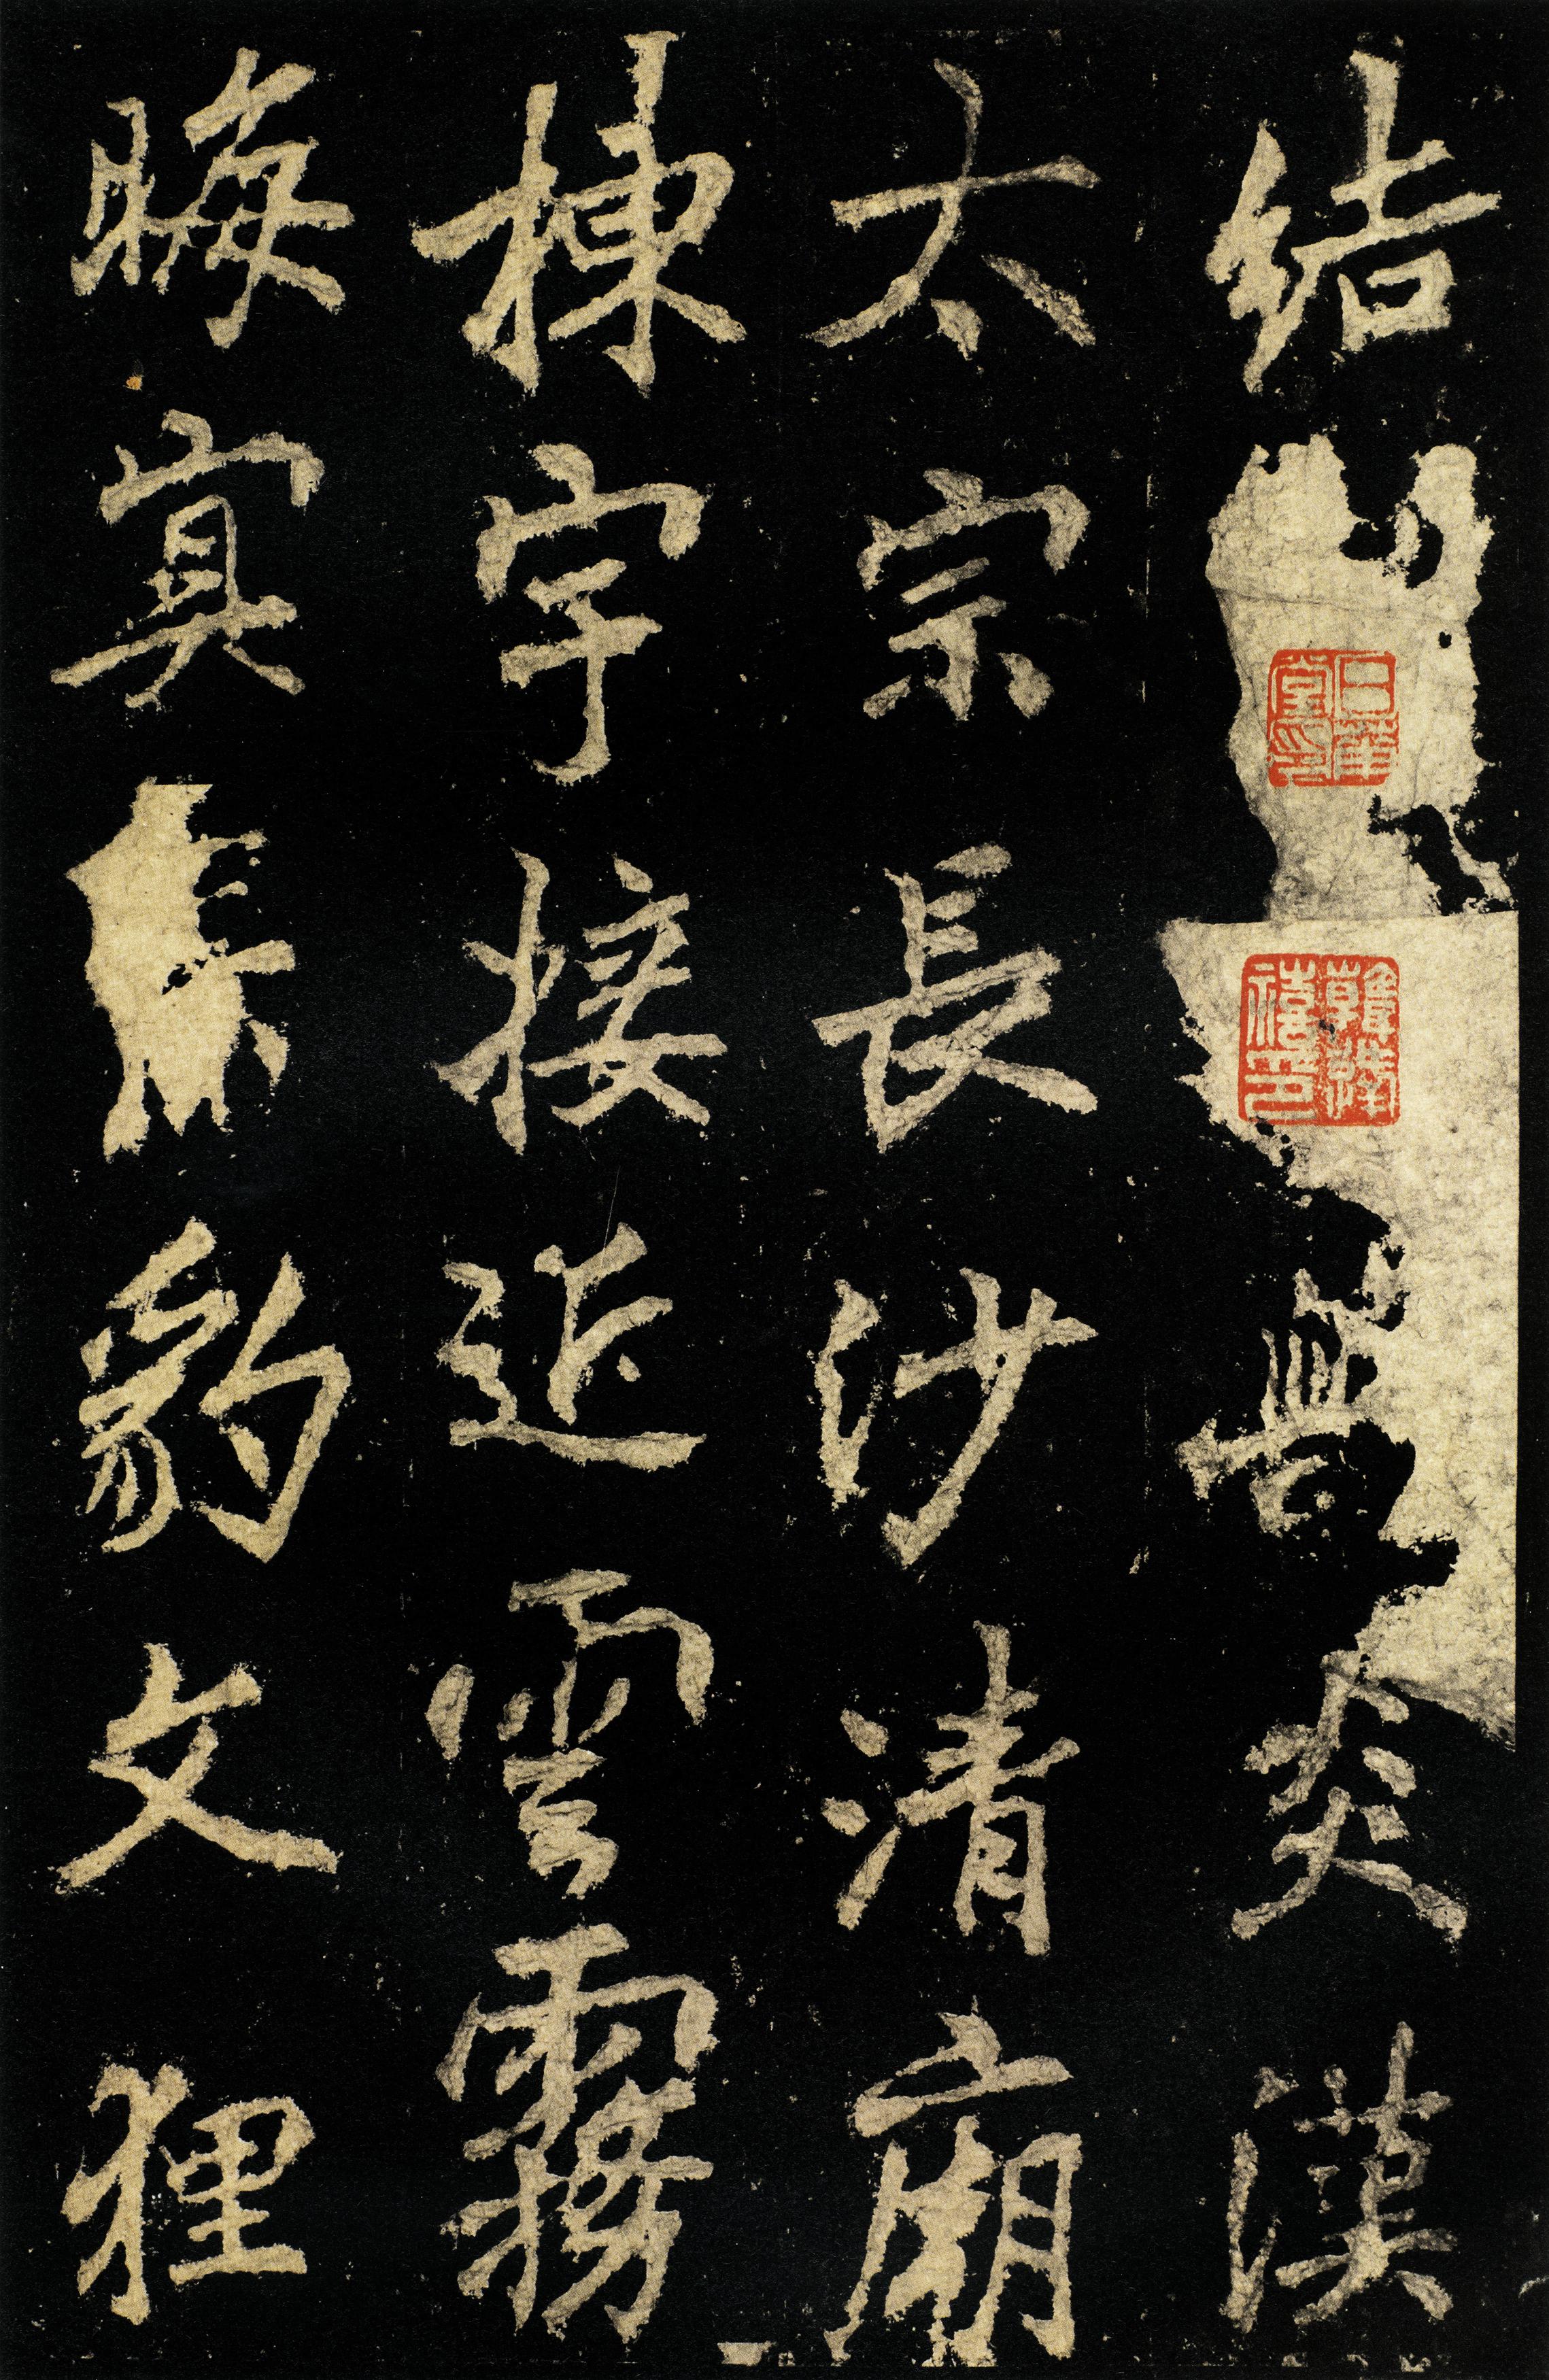 結炎漢
太宗長沙清廟
棟宇接近雲霧
晦冥豹文狸